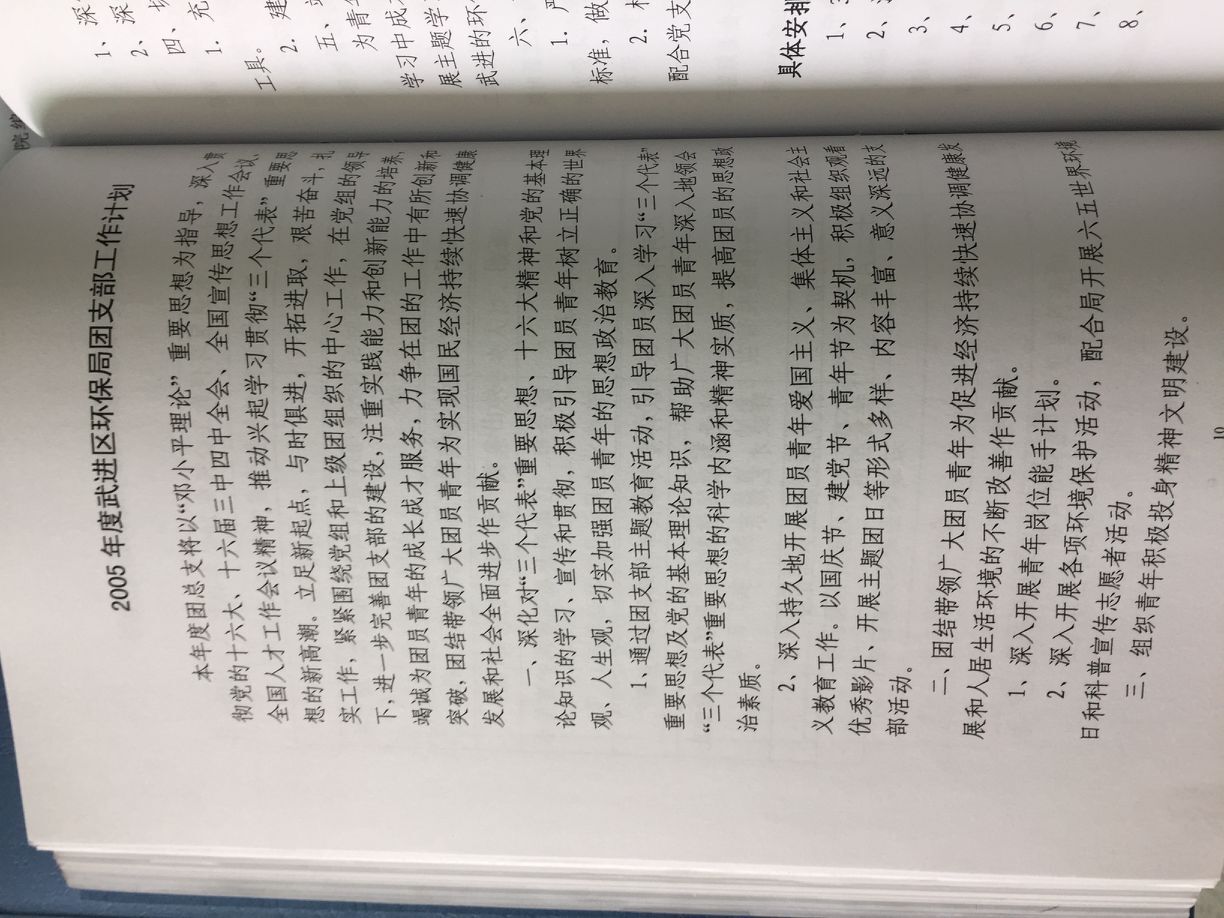 2005 年度武进区环保局团支部工作计划
本年度团总支将以“邓小平理论” 重要思想为指导，深入贯
彻党的十六大、十六届三中四中全会、全国宣传思想工作会议、
全国人才工作会议精神，推动兴起学习贯彻“三个代表” 重要思
想的新高潮。立足新起点，与时俱进，开拓进取，艰苦奋斗，扎
实工作，紧紧围绕党组和上级团组织的中心工作，在党组的领导
下，进一步完善团支部的建设，注重实践能力和创新能力的培养，
竭诚为团员青年的成长成才服务，力争在团的工作中有所创新和
突破，团结带领广大团员青年为实现国民经济持续快速协调健康
发展和社会全面进步作贡献。
一、深化对“三个代表”重要思想、十六大精神和党的基本理
论知识的学习、宣传和贯彻，积极引导团员青年树立正确的世界
观、人生观，切实加强团员青年的思想政治教育。
1、通过团支部主题教育活动，引导团员深入学习“三个代表”
重要思想及党的基本理论知识，帮助广大团员青年深入地领会
“三个代表”重要思想的科学内涵和精神实质，提高团员的思想政
治素质。
2、深入持久地开展团员青年爱国主义、集体主义和社会主
义教育工作。以国庆节、建党节、青年节为契机，积极组织观看
优秀影片、开展主题团日等形式多样、内容丰富、意义深远的支
部活动。
二、团结带领广大团员青年为促进经济持续快速协调健康发
展和人居生活环境的不断改善作贡献。
1、深入开展青年岗位能手计划。
2、深入开展各项环境保护活动，配合局开展六五世界环境
日和科普宣传志愿者活动。
三、组织青年积极投身精神文明建设。
1、深
2、深
四、切
1. 充
工具。
2. 建
五、
为青年
学习中成
展主题学
武进的环
六、
1. 严
标准，做
2.
配合党支
具体安排
1、
2、
3、
4、
5、
6、
7、
8、